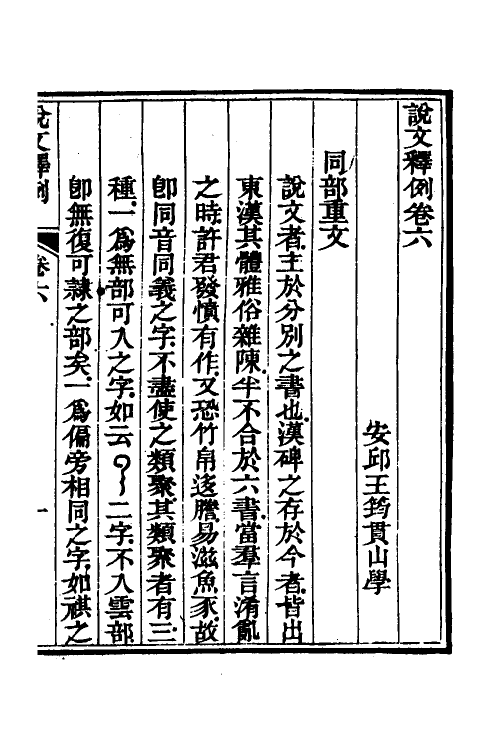 說文釋例卷六
安邱王筠貫山學
同部重文
說文者主於分別之書也漢碑之存於今者皆出
東漢其體雅俗雜陳半不合於六書當羣言淆亂
之時許君發憤有作又恐竹帛迻謄易滋魚豕故
卽同音同義之字不盡使之類聚其類聚者有三
種一爲無部可入之字如云𠃉〜二字不入雲部
卽無復可隸之部矣一爲偏旁相同之字如祺之
說文釋例 卷六 一